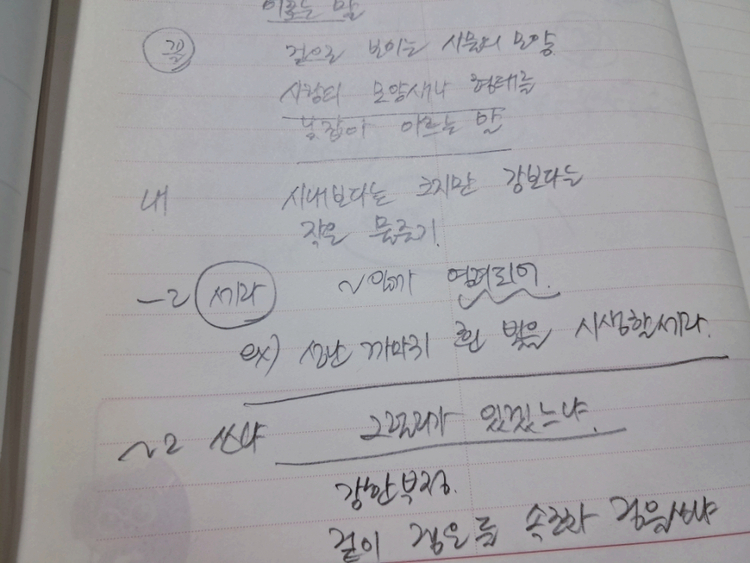 이르는 말
꼴 겉으로 보이는 사물의 모양
사람의 모양새나 형태를
낮잡아 이르는 말
내 시내보다는 크지만 강보다는
작은 물줄기.
-ㄹ 세라 ~일까 염려되어.
ex) 성난 까마귀 흰 빛을 시샘할세라.
~ㄹ 쏘냐 그럴리가 있겠느냐.
강한부정.
겉이 검은들 속조차 검을쏘냐